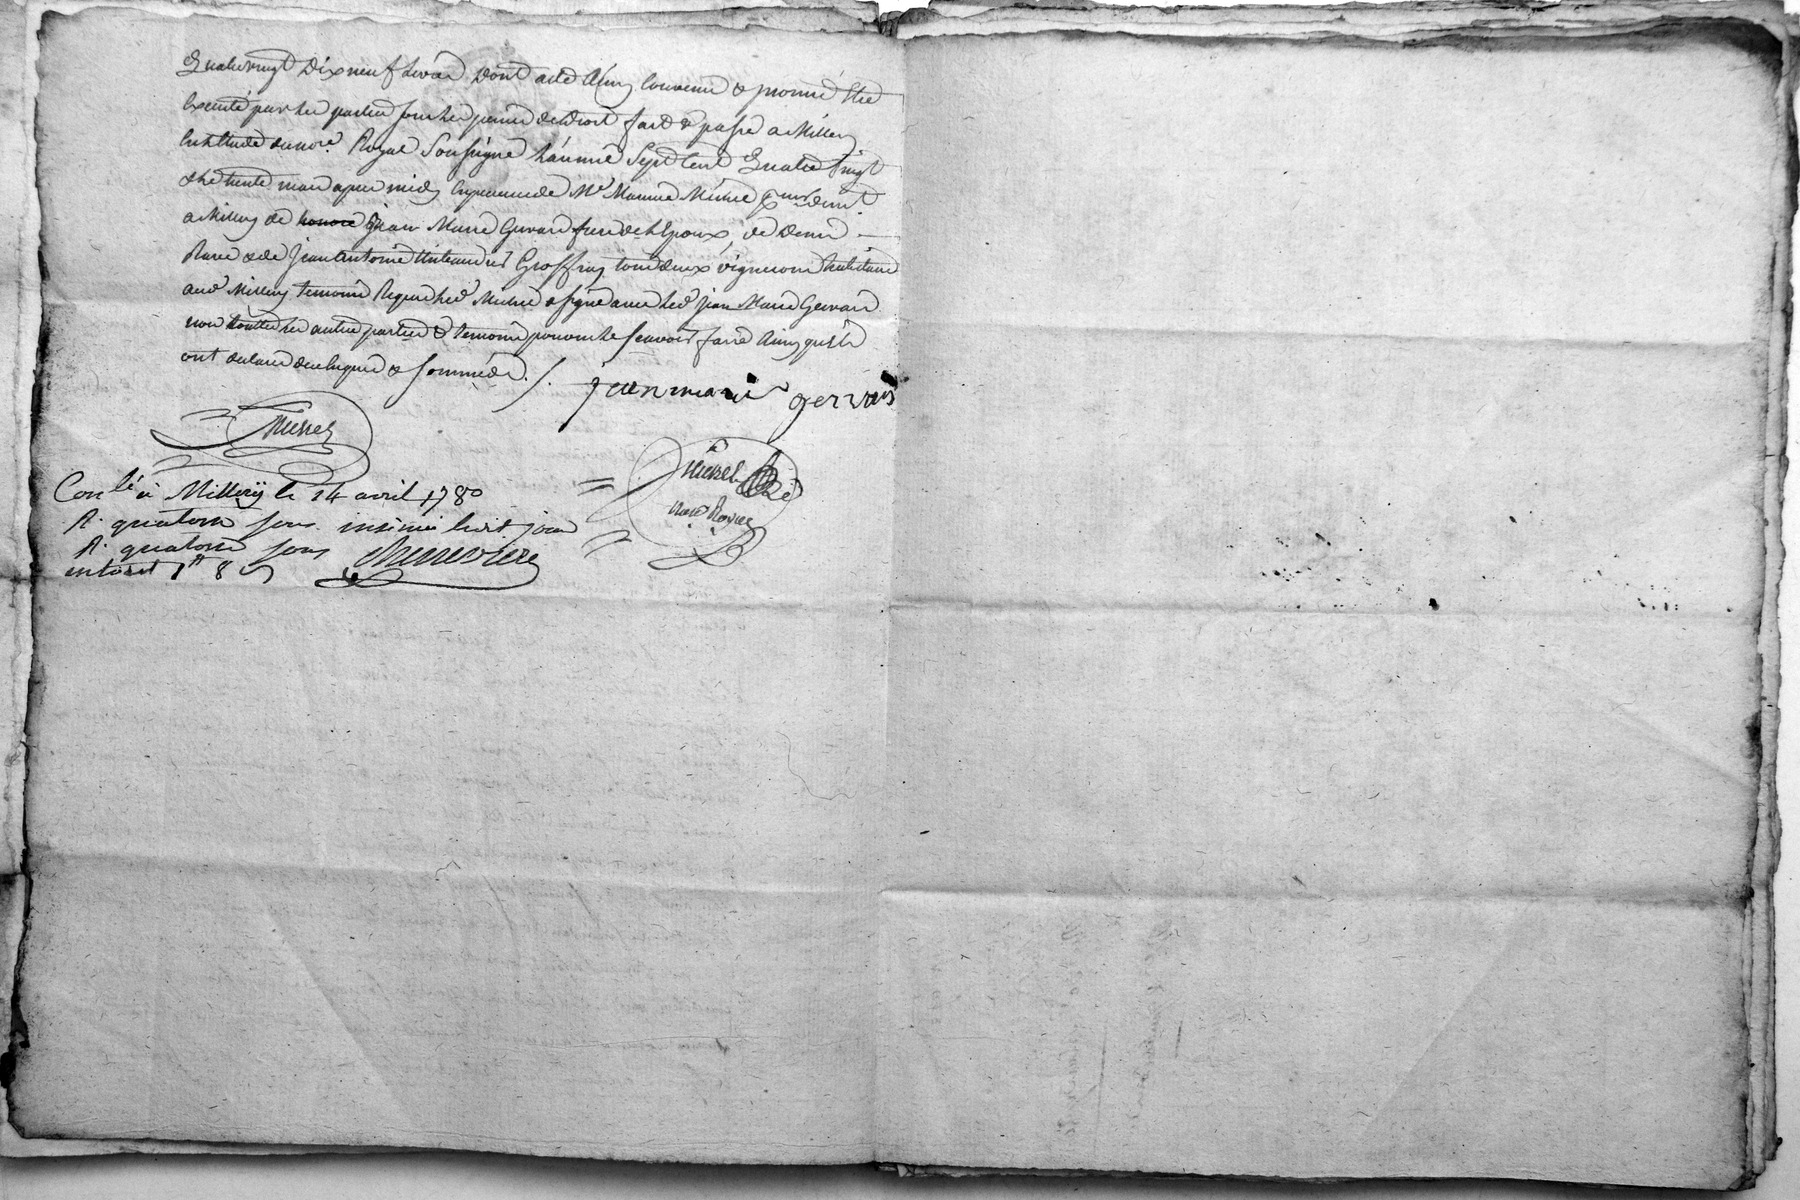 Quatrevingt Dix neuf livres Dont acte Ainsy Convenu & promis Etre
Executé par les parties sous les peines de droit fait & passé a Millery
En L'Etude du no.re Royal Soussigné L'an mil Sept Cent Quatre Vingt
& le trente mars apres midy En presence de M.e Michel dem.t
a Millery de honoré Jean Marie Gervais frere de L'Epoux, de Denis
& de Jean Antoine Geoffray tous deux vignerons habitants
aud. Millery temoins Requis led. Michel a signé avec led. Jean Marie Gervais
non les autres parties & temoins pour ne le sçavoir faire Ainsy qu'ils
ont declaré de ce Enquis & Sommés. /.
jean marie gervais
Con.lé a Millery le 14 avril 1780
R. quatorze sous insinué ledit jour
R. quatorze sous
Michel
no.re Royal
en tout 1# 8 s